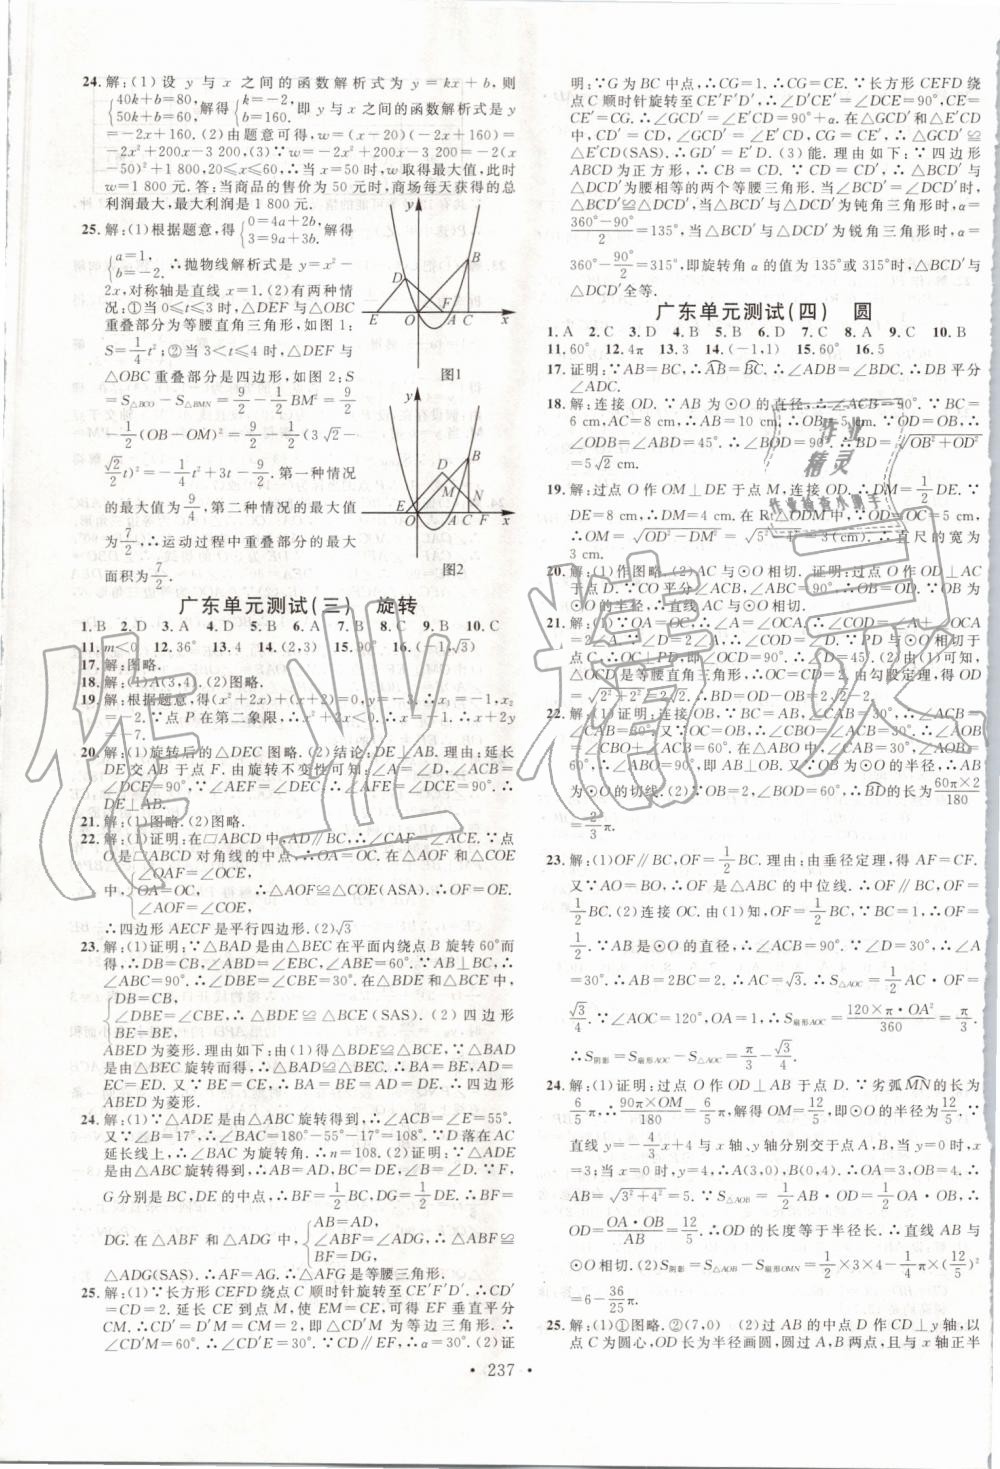 24. 解:(1)设 y 与 x 之间的函数解析式为 y=kx+b,则
{40k+b=80, 50k+b=60. 解得 {k=-2, b=160. 即 y 与 x 之间的函数解析式是 y
=-2x+160. (2)由题意可得,w=(x-20)(-2x+160)=
-2x²+200x-3 200,(3)∵w=-2x²+200x-3 200=-2(x
-50)²+1 800,20≤x≤60,∴当 x=50 时,w 取得最大值,此时
w=1 800 元.答:当商品的售价为 50 元时,商场每天获得的总
利润最大,最大利润是 1 800 元.
25. 解:(1)根据题意,得 {0=4a+2b, 3=9a+3b. 解得
{a=1, b=-2. ∴抛物线解析式是 y=x²-
2x,对称轴是直线 x=1. (2)有两种情
况:①当 0≤t≤3 时,△DEF 与△OBC
重叠部分为等腰直角三角形,如图 1:
S=1/4 t²;②当 3<t≤4 时,△DEF 与
△OBC 重叠部分是四边形,如图 2:S
=S△BCO-S△BMN=9/2-1/2 BM²=9/2
-1/2(OB-OM)²=9/2-1/2(3√2-
√2/2 t)²=-1/4 t²+3/2 t-9/2. 第一种情况
的最大值为 9/4,第二种情况的最大值
为 7/2,∴运动过程中重叠部分的最大
面积为 7/2.
y D B E O F A C x
图1
y D B M N E O A C F x
图2
广东单元测试(三) 旋转
1. B 2. D 3. A 4. D 5. B 6. A 7. B 8. C 9. B 10. C
11. m<0 12. 36° 13. 4 14. (2,3) 15. 90° 16. (-1,√3)
17. 解:图略.
18. 解:(1)A(3,4). (2)图略.
19. 解:根据题意,得(x²+2x)+(x+2)=0,y=-3. ∴x₁=-1,x₂
=-2. ∵点 P 在第二象限,∴x²+2x<0. ∴x=-1. ∴x+2y
=-7.
20. 解:(1)旋转后的△DEC 图略. (2)结论:DE⊥AB. 理由:延长
DE 交 AB 于点 F. 由旋转不变性可知:∠A=∠D,∠ACB=
∠DCE=90°. ∵∠AEF=∠DEC,∴∠AFE=∠DCE=90°. ∴
DE⊥AB.
21. 解:(1)图略. (2)图略.
22. 解:(1)证明:在□ABCD 中,AD∥BC,∴∠CAF=∠ACE. ∵点
O 是□ABCD 对角线的中点,∴OA=OC. 在△AOF 和△COE
中,{∠CAF=∠ACE, OA=OC, ∠AOF=∠COE, ∴△AOF≌△COE(ASA). ∴OF=OE.
∴四边形 AECF 是平行四边形. (2)√3
23. 解:(1)证明:∵△BAD 是由△BEC 在平面内绕点 B 旋转 60°而
得,∴DB=CB,∠ABD=∠EBC,∠ABE=60°. ∵AB⊥BC,∴
∠ABC=90°. ∴∠DBE=∠CBE=30°. 在△BDE 和△BCE 中,
{DB=CB, ∠DBE=∠CBE, BE=BE, ∴△BDE≌△BCE(SAS). (2)四边形
ABED 为菱形. 理由如下:由(1)得△BDE≌△BCE,∵△BAD
是由△BEC 旋转而得,∴△BAD≌△BEC. ∴BA=BE,AD=EC
=ED. 又∵BE=CE,∴BA=BE=AD=ED. ∴四边形 ABED 为
菱形.
24. 解:(1)∵△ADE 是由△ABC 旋转得到,∴∠ACB=∠E=55°.
又∵∠B=17°,∴∠BAC=180°-55°-17°=108°. ∵D 落在 AC
延长线上,∴∠BAC 为旋转角. ∴n=108. (2)证明:∵△ADE
是由△ABC 旋转得到,∴AB=AD,∠B=∠D,BC=DE. ∵F,
G 分别是 BC,DE 的中点,∴BF=1/2 BC,DG=1/2 DE. ∴BF=
DG. 在△ABF 和△ADG 中,{AB=AD, ∠ABF=∠ADG, BF=DG, ∴△ABF≌
△ADG(SAS). ∴AF=AG. ∴△AFG 是等腰三角形.
25. 解:(1)∵长方形 CEFD 绕点 C 顺时针旋转至 CE′F′D′,∴CD′
=CD=2. 延长 CE 到点 M,使 EM=CE,可得 EF 垂直平分
CM. ∴CD′=D′M=CM=2,即△CD′M 为等边三角形. ∴
∠CD′M=60°. ∴∠CD′E=30°. ∵CD∥EF,∴α=30°. (2)证
明:∵G 为 BC 中点,∴CG=1. ∴CG=CE. ∵长方形 CEFD 绕
点 C 顺时针旋转至 CE′F′D′,∴∠D′CE′=∠DCE=90°,CE=
CE′=CG. ∴∠GCD′=∠DCE′=90°+α. 在△GCD′和△E′CD
中,CD′=CD,∠GCD′=∠DCE′,CG=CE′,∴△GCD′≌
△E′CD(SAS). ∴GD′=E′D. (3)能. 理由如下:∵四边形
ABCD 为正方形,∴CB=CD. ∵CD=CD′,∴△BCD′与
△DCD′为腰相等的两个等腰三角形. 当∠BCD′=∠DCD′时,
△BCD′≌△DCD′. 当△BCD′与△DCD′为钝角三角形时,α=
(360°-90°)/2=135°,当△BCD′与△DCD′为锐角三角形时,α=
360°-90°/2=315°,即旋转角 α 的值为 135°或 315°时,△BCD′与
△DCD′全等.
广东单元测试(四) 圆
1. A 2. C 3. D 4. B 5. B 6. D 7. C 8. A 9. C 10. B
11. 60° 12. 4π 13. 3 14. (-1,1) 15. 60° 16. 5
17. 证明:∵AB=BC,∴AB=BC. ∴∠ADB=∠BDC. ∴DB 平分
∠ADC.
18. 解:连接 OD. ∵AB 为⊙O 的直径,∴∠ACB=90°. ∵BC=
6 cm,AC=8 cm,∴AB=10 cm. ∴OB=5 cm. ∵OD=OB,∴
∠ODB=∠ABD=45°. ∴∠BOD=90°. ∴BD=√(OB²+OD²)
=5√2 cm.
19. 解:过点 O 作 OM⊥DE 于点 M,连接 OD. ∴DM=1/2 DE. ∵
DE=8 cm,∴DM=4 cm. 在 Rt△ODM 中,∵OD=OC=5 cm,
∴OM=√(OD²-DM²)=√(5²-4²)=3(cm). ∴直尺的宽为
3 cm.
20. 解:(1)作图略. (2)AC 与⊙O 相切. 证明:过点 O 作 OE⊥AC 于
点 E. ∵AB⊥BC,∴OB⊥BC. 又∵CO 平分∠ACB,∴OE=OB. ∵OB
为⊙O 的半径,∴直线 AC 与⊙O 相切.
21. 解:(1)∵OA=OC,∴∠A=∠ACO. ∴∠COD=∠A+∠ACO=
2∠A. ∵∠D=2∠A,∴∠D=∠COD. (2)∵PD 与⊙O 相切于
点 C,∴OC⊥PD,∴∠OCD=90°. ∵∠D=∠COD,由(1)可知,
△OCD 是等腰直角三角形,∴OC=CD=2. 由勾股定理,得 OD
=√(2²+2²)=2√2,∴BD=OD-OB=2√2-2.
22. 解:(1)证明:连接 OB,∵BC=AB,∠CAB=30°,∴∠ACB=
∠CAB=30°. ∵OC=OB,∴∠CBO=∠ACB=30°. ∴∠AOB
=∠CBO+∠ACB=60°. 在△ABO 中,∵∠CAB=30°,∠AOB=
60°,∴∠ABO=90°,即 AB⊥OB. 又∵OB 为⊙O 的半径,∴AB
是⊙O 的切线. (2)∵OB=2,∠BOD=60°,∴BD的长为 (60π×2)/180
=2/3 π.
23. 解:(1)OF∥BC,OF=1/2 BC. 理由:由垂径定理,得 AF=CF.
又∵AO=BO,∴OF 是△ABC 的中位线. ∴OF∥BC,OF=
1/2 BC. (2)连接 OC. 由(1)知,OF=1/2. ∵BC=1,∴OF=1/2. ∵
AB 是⊙O 的直径,∴∠ACB=90°. ∵∠D=30°,∴∠A
=30°. ∴AB=2BC=2. ∴AC=√3. ∴S△AOC=1/2 AC·OF=
√3/4. ∵∠AOC=120°,OA=1,∴S扇形AOC=(120×π·OA²)/360=π/3.
∴S阴影=S扇形AOC-S△AOC=π/3-√3/4.
24. 解:(1)证明:过点 O 作 OD⊥AB 于点 D. ∵劣弧MN的长为
6/5 π,∴(90π×OM)/180=6/5 π. 解得 OM=12/5,即⊙O 的半径为 12/5. ∵
直线 y=-4/3 x+4 与 x 轴,y 轴分别交于点 A,B,当 y=0 时,x
=3;当 x=0 时,y=4,∴A(3,0),B(0,4). ∴OA=3,OB=4. ∴
AB=√(3²+4²)=5. ∵S△AOB=1/2 AB·OD=1/2 OA·OB,∴
OD=(OA·OB)/AB=12/5. ∴OD 的长度等于半径长. ∴直线 AB 与
⊙O 相切. (2)S阴影=S△AOB-S扇形OMN=1/2×3×4-1/4 π×(12/5)²
=6-36/25 π.
25. 解:(1)①图略. ②(7,0) (2)过 AB 的中点 D 作 CD⊥y 轴,以
点 C 为圆心,OC 长为半径画圆,由垂径定理,且与 x 轴正半
· 237 ·
作业精灵
作业检查小帮手